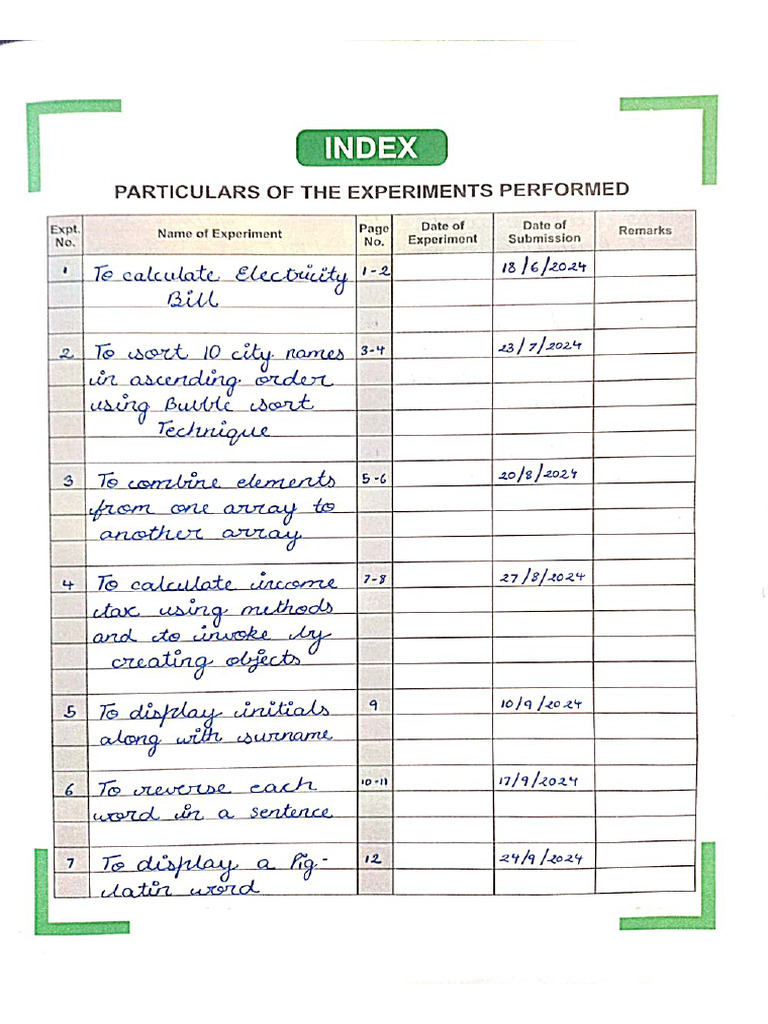 INDEX
PARTICULARS OF THE EXPERIMENTS PERFORMED
Expt. No. Name of Experiment Page No. Date of Experiment Date of Submission Remarks
1 To calculate Electricity 1-2 18/6/2024
Bill
2 To sort 10 city names 3-4 23/7/2024
in ascending order
using Bubble sort
Technique
3 To combine elements 5-6 20/8/2024
from one array to
another array
4 To calculate income 7-8 27/8/2024
tax using methods
and to invoke by
creating objects
5 To display initials 9 10/9/2024
along with surname
6 To reverse each 10-11 17/9/2024
word in a sentence
7 To display a Pig- 12 24/9/2024
latin word